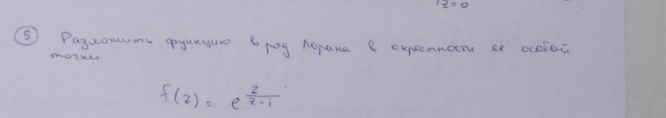 z=0
5 Разложить функцию в ряд Лорана в окрестности её особой
точки
f(z) = e^{\frac{z}{z-1}}